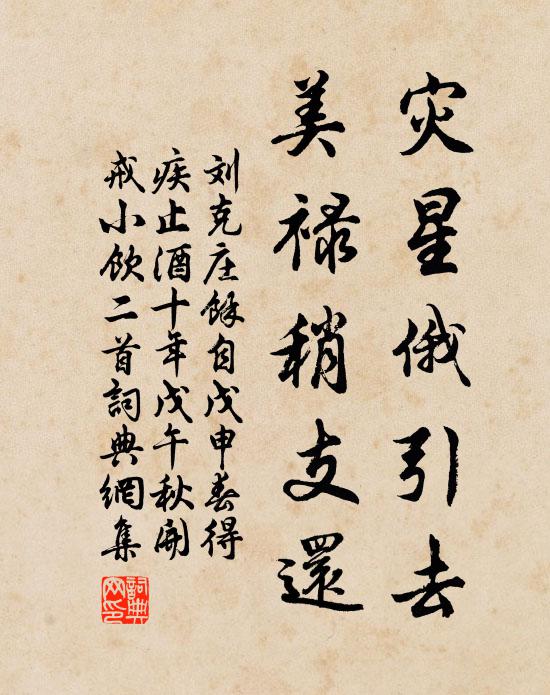 灾星俄引去
美禄稍支還
刘克庄餘自戊申春得
疾止酒十年戊午秋開
戒小飲二首詞典網集
詞典
网印